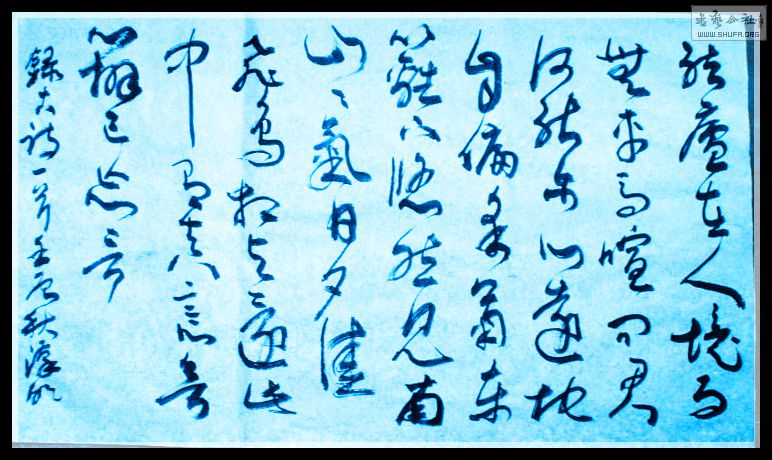 結廬在人境而
無車馬喧問君
何能尔心遠地
自偏采菊東
籬下悠然見南
山〻氣日夕佳
飛鳥相與還此
中有真意欲
辨已忘言
錄古詩一首壬辰秋
书艺公社
WWW.SHUFA.ORG